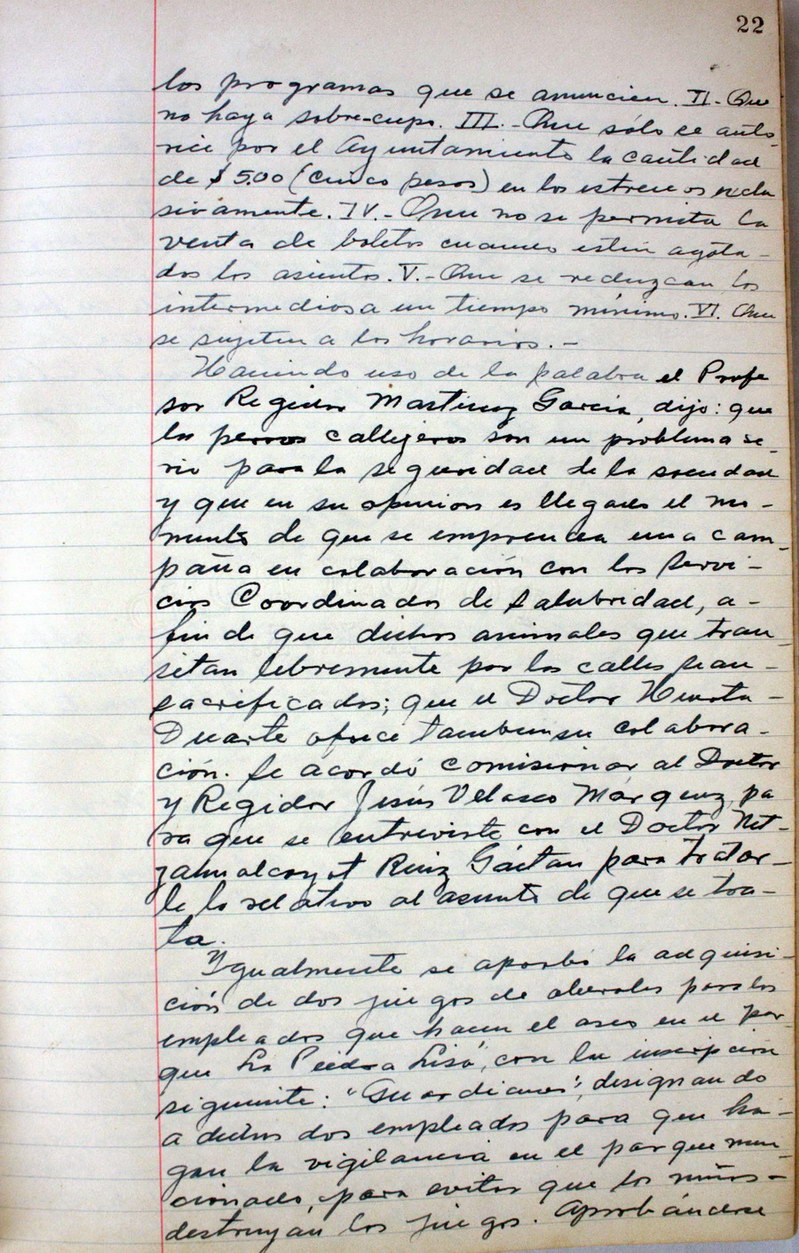 22
los programas que se anuncien. II.- Que
no haya sobre-cupo. III.- Que sólo se auto-
rice por el Ayuntamiento la cantidad
de $5.00 (cinco pesos) en los estrenos exclu
sivamente. IV.- Que no se permita la
venta de boletos cuando estén agota-
dos los asientos. V.- Que se reduzcan los
intermedios a un tiempo mínimo. VI. Que
se sujeten a los horarios.-
Haciendo uso de la palabra el Profe
sor Regidor Martínez García, dijo: que
los perros callejeros son un problema se-
rio para la seguridad de la sociedad
y que en su opinion es llegado el mo-
mento de que se emprenda una cam-
paña en colaboración con los Servi-
cios Coordinados de Salubridad, a-
fin de que dichos animales que tran-
sitan libremente por las calles sean-
sacrificados; que el Doctor
Duarte ofrece tambien su colabora-
ción. Se acordó comisionar al Doctor
y Regidor Jesús Velasco Márquez, pa
ra que se entreviste con el Doctor Net-
zahualcoyot Ruiz Gaitan para tratar-
le lo relativo al asunto de que se tra-
ta.
Ygualmente se aprobó la adquisi-
ción de dos juegos de overoles para los
empleados que hacen el aseo en el par-
que La Piedra Lisa, con la inscripción
siguiente: "Guardianes", designando
a dichos dos empleados para que ha-
gan la vigilancia en el parque men-
cionado, para evitar que los niños-
destruyan los juegos. Aprobándose